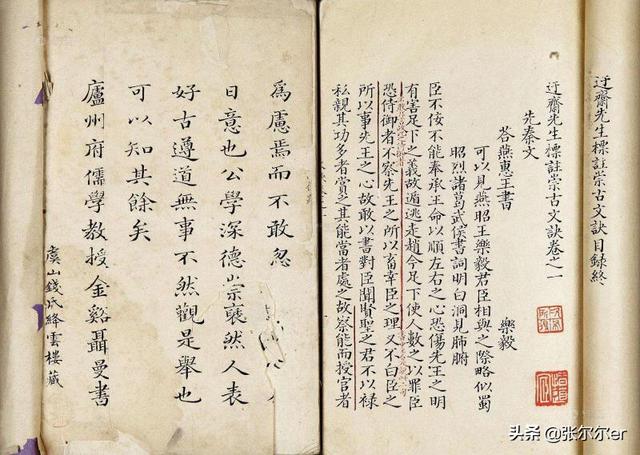 迂齋先生標註崇古文訣目録終
迂齋先生標註崇古文訣卷之一
先秦文
荅燕惠王書 樂毅
可以見燕昭王樂毅君臣相與之際略似蜀
昭烈諸葛武侯書詞明白洞見肺腑
臣不佞不能奉承王命以順左右之心恐傷先王之明
有害足下之義故遁逃走趙今足下使人數之以罪臣
恐侍御者不察先王之所以畜幸臣之理又不白臣之
所以事先王之心故敢以書對臣聞賢聖之君不以禄
私親其功多者賞之其能當者處之故察能而授官者
爲慮焉而不敢忽
日意也公學深德崇裦然人表
好古遵道無事不然觀是舉也
可以知其餘矣
廬州府儒學教授金谿聶曼書
虞山錢氏絳雲樓藏
头条 @张尔尔er